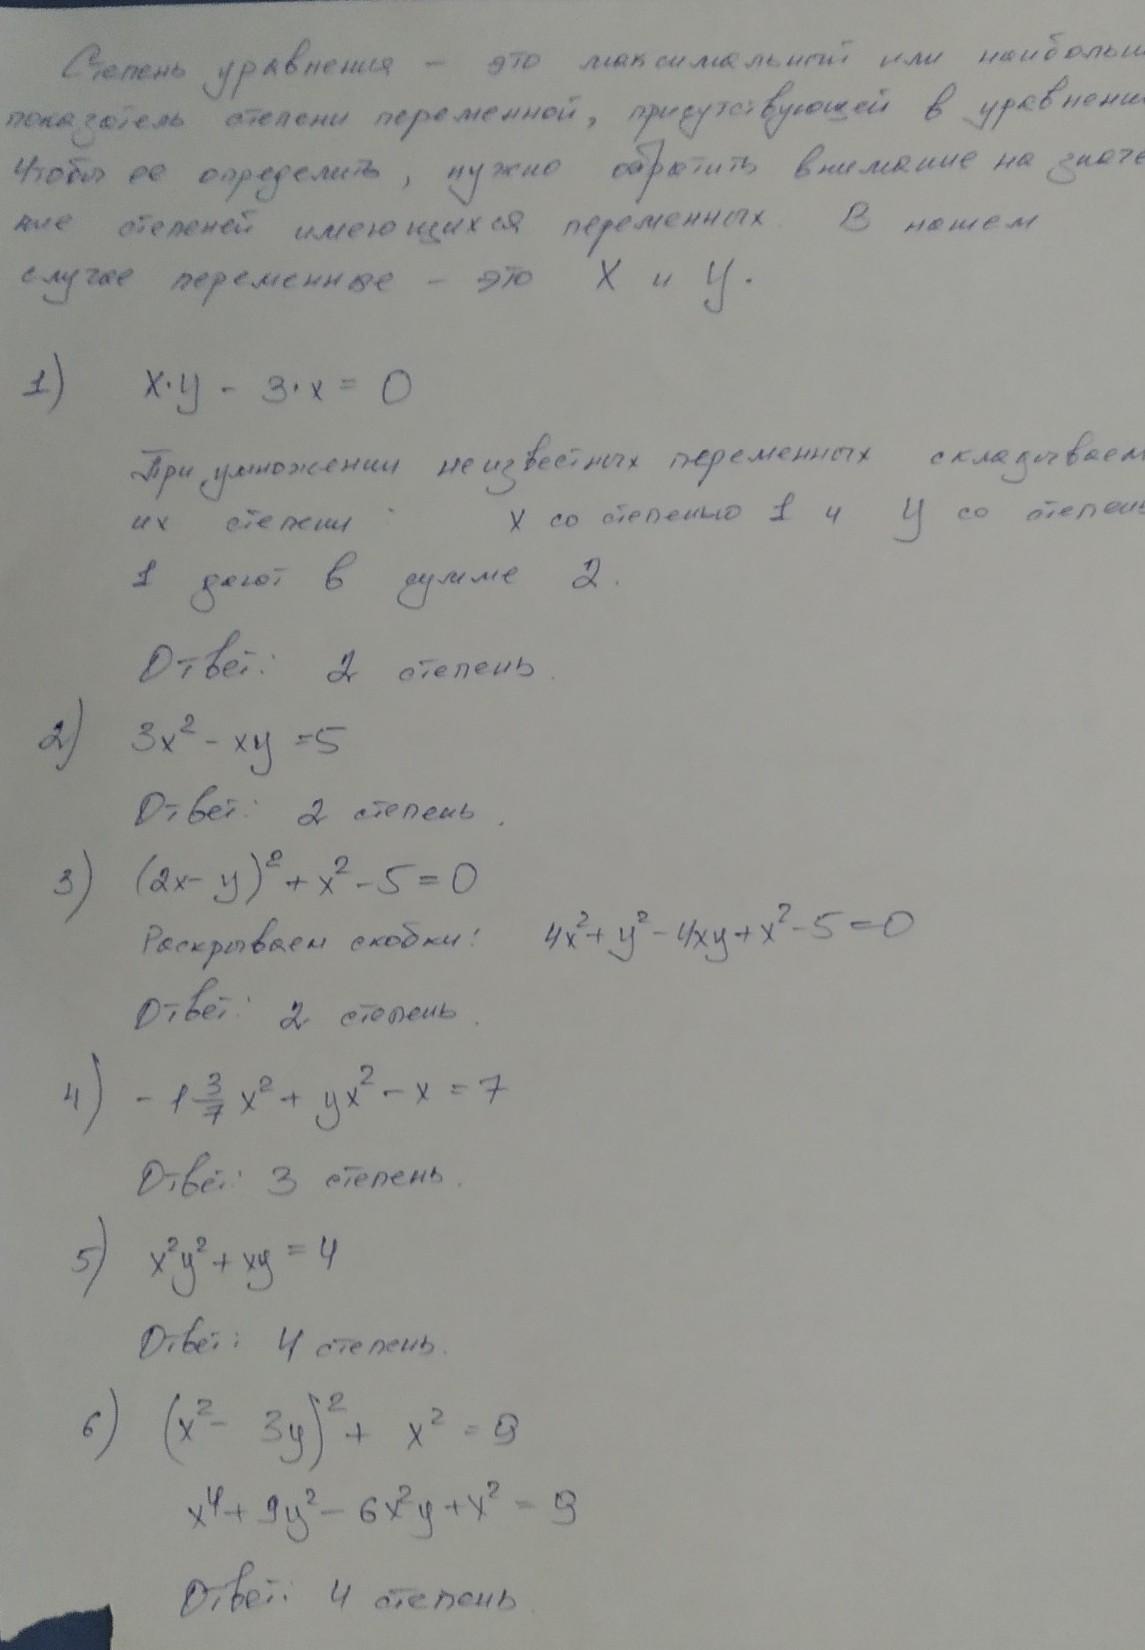 Степень уравнения – это максимальный или наибольш
показатель степени переменной, присутствующей в уравнени
Чтобы ее определить, нужно обратить внимание на значе
ние степеней имеющихся переменных. В нашем
случае переменные – это X и У.
1) x·y - 3·x = 0
При умножении неизвестных переменных складываем
их степени: X со степенью 1 и У со степень
1 дают в сумме 2.
Ответ: 2 степень.
2) 3x² - xy = 5
Ответ: 2 степень.
3) (2x - y)² + x² - 5 = 0
Раскрываем скобки: 4x² + y² - 4xy + x² - 5 = 0
Ответ: 2 степень.
4) - 1 3/7 x² + yx² - x = 7
Ответ: 3 степень.
5) x²y² + xy = 4
Ответ: 4 степень.
6) (x² - 3y)² + x² = 9
x⁴ + 9y² - 6x²y + x² = 9
Ответ: 4 степень.